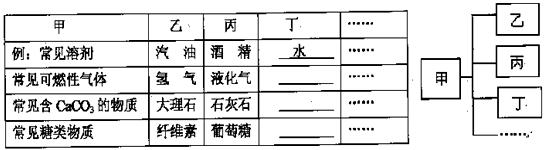 甲 乙 丙 丁 ……
例：常见溶剂 汽 油 酒 精 水 ……
常见可燃性气体 氢 气 液化气 ______ ……
常见含CaCO₃的物质 大理石 石灰石 ______ ……
常见糖类物质 纤维素 葡萄糖 ______ ……
甲
乙
丙
丁
……